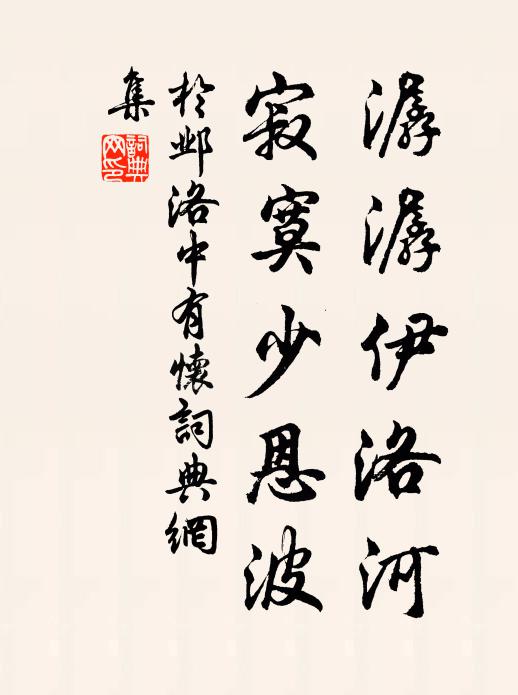 潺潺伊洛河
寂寞少恩波
於鄴洛中有懷詞典網
集
詞典網印